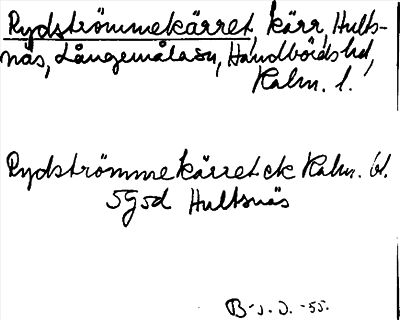 Rydströmmekärret, kärr, Hults-
näs, Långemåla sn, Handbörds hd,
Kalm. l.
Rydströmmekärret ek Kalm. bl.
5g5d Hultsnäs
B-J. D. -55.